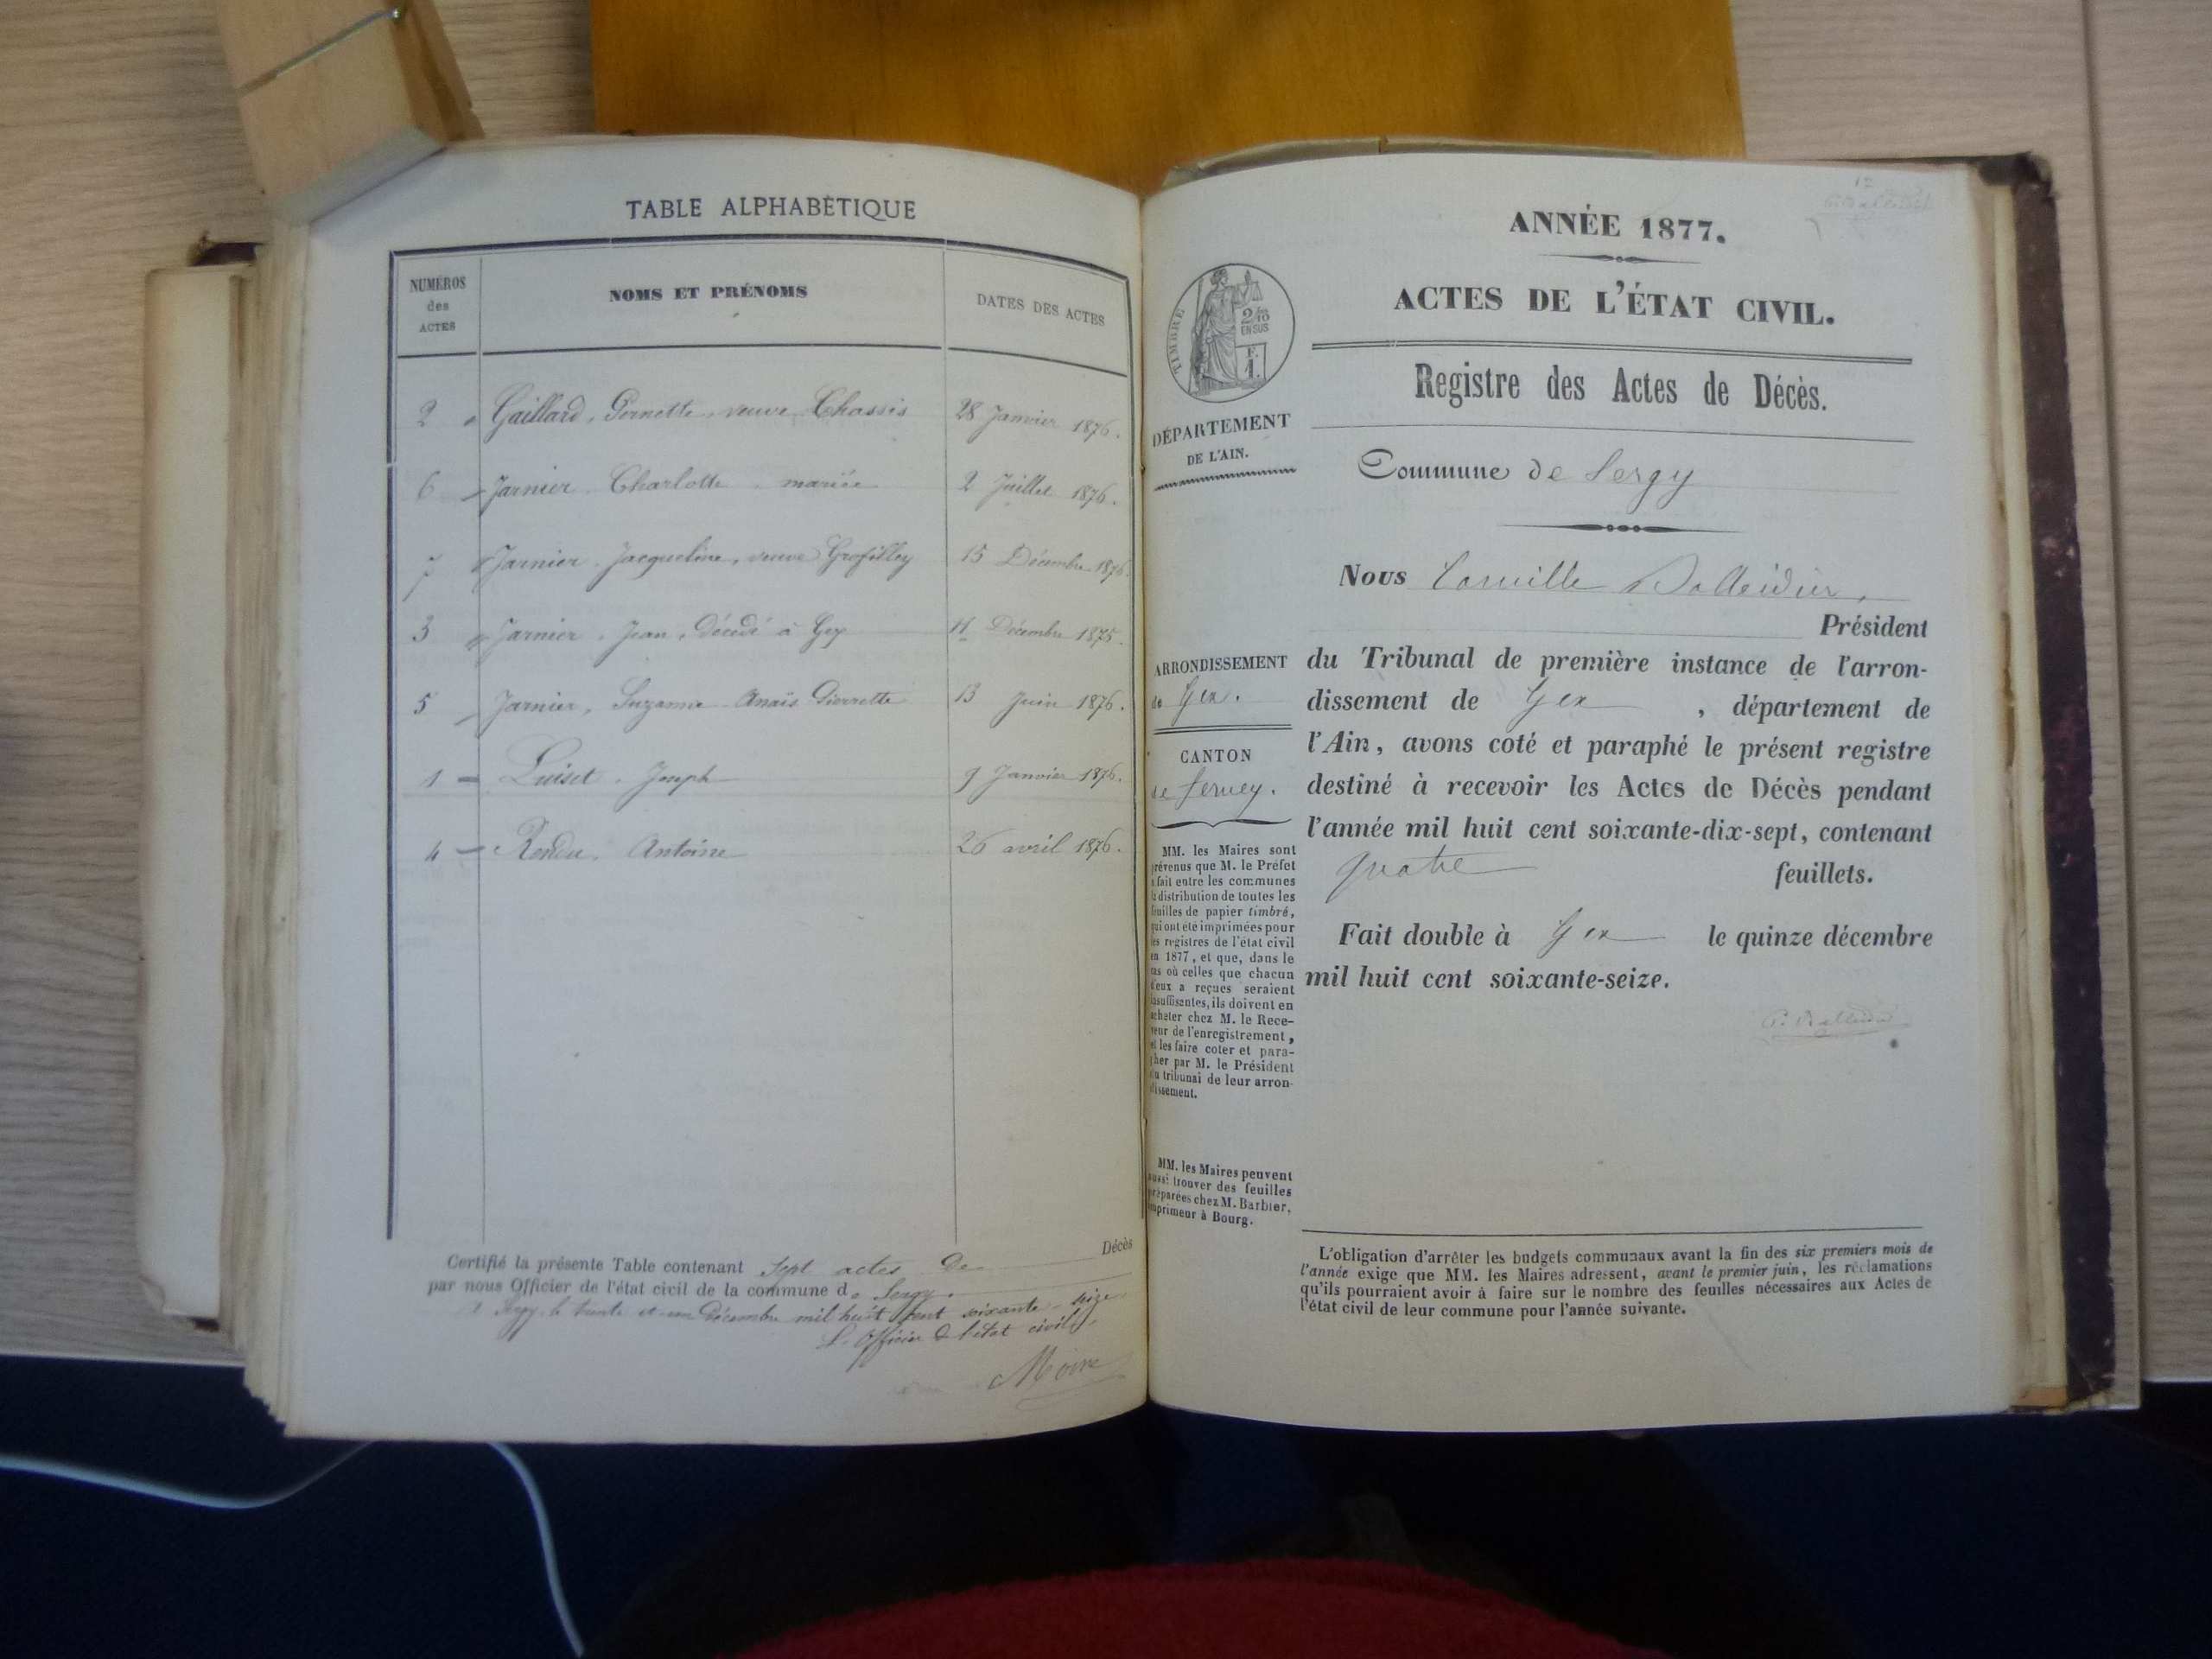 TABLE ALPHABÉTIQUE
NUMÉROS
des
ACTES
NOMS ET PRÉNOMS
DATES DES ACTES
2 Gaillard, Pernette, veuve Chassis 28 Janvier 1876.
6 Jarnier Charlotte mariée 2 Juillet 1876.
7 Jarnier Jacqueline, veuve Grosfilley 15 Décembre 1876.
3 Jarnier, Jean, Décédé à Gex 11 Décembre 1875.
5 Jarnier, Suzanne Anaïs Pierrette 13 Juin 1876.
1 Luiset, Joseph 9 Janvier 1876.
4 Rendu, Antoine 26 avril 1876.
Certifié la présente Table contenant Sept actes De Décès
par nous Officier de l'état civil de la commune de Sergy.
A Sergy le trente et un Décembre mil huit cent soixante-seize
L'Officier de l'état civil,
ANNÉE 1877.
ACTES DE L'ÉTAT CIVIL.
Registre des Actes de Décès.
TIMBRE
2/10
EN SUS
F.
1.
DÉPARTEMENT
DE L'AIN.
Commune de Sergy
Nous Camille
Président
du Tribunal de première instance de l'arron-
dissement de Gex, département de
l'Ain, avons coté et paraphé le présent registre
destiné à recevoir les Actes de Décès pendant
l'année mil huit cent soixante-dix-sept, contenant
quatre feuillets.
Fait double à Gex le quinze décembre
mil huit cent soixante-seize.
ARRONDISSEMENT
de Gex.
CANTON
de Ferney.
MM. les Maires sont
prévenus que M. le Préfet
a fait entre les communes
la distribution de toutes les
feuilles de papier timbré,
qui ont été imprimées pour
les registres de l'état civil
en 1877, et que, dans le
cas où celles que chacun
d'eux a reçues seraient
insuffisantes, ils doivent en
acheter chez M. le Rece-
veur de l'enregistrement,
et les faire coter et para-
pher par M. le Président
du tribunal de leur arron-
dissement.
MM. les Maires peuvent
aussi trouver des feuilles
préparées chez M. Barbier,
imprimeur à Bourg.
L'obligation d'arrêter les budgets communaux avant la fin des six premiers mois de
l'année exige que MM. les Maires adressent, avant le premier juin, les réclamations
qu'ils pourraient avoir à faire sur le nombre des feuilles nécessaires aux Actes de
l'état civil de leur commune pour l'année suivante.